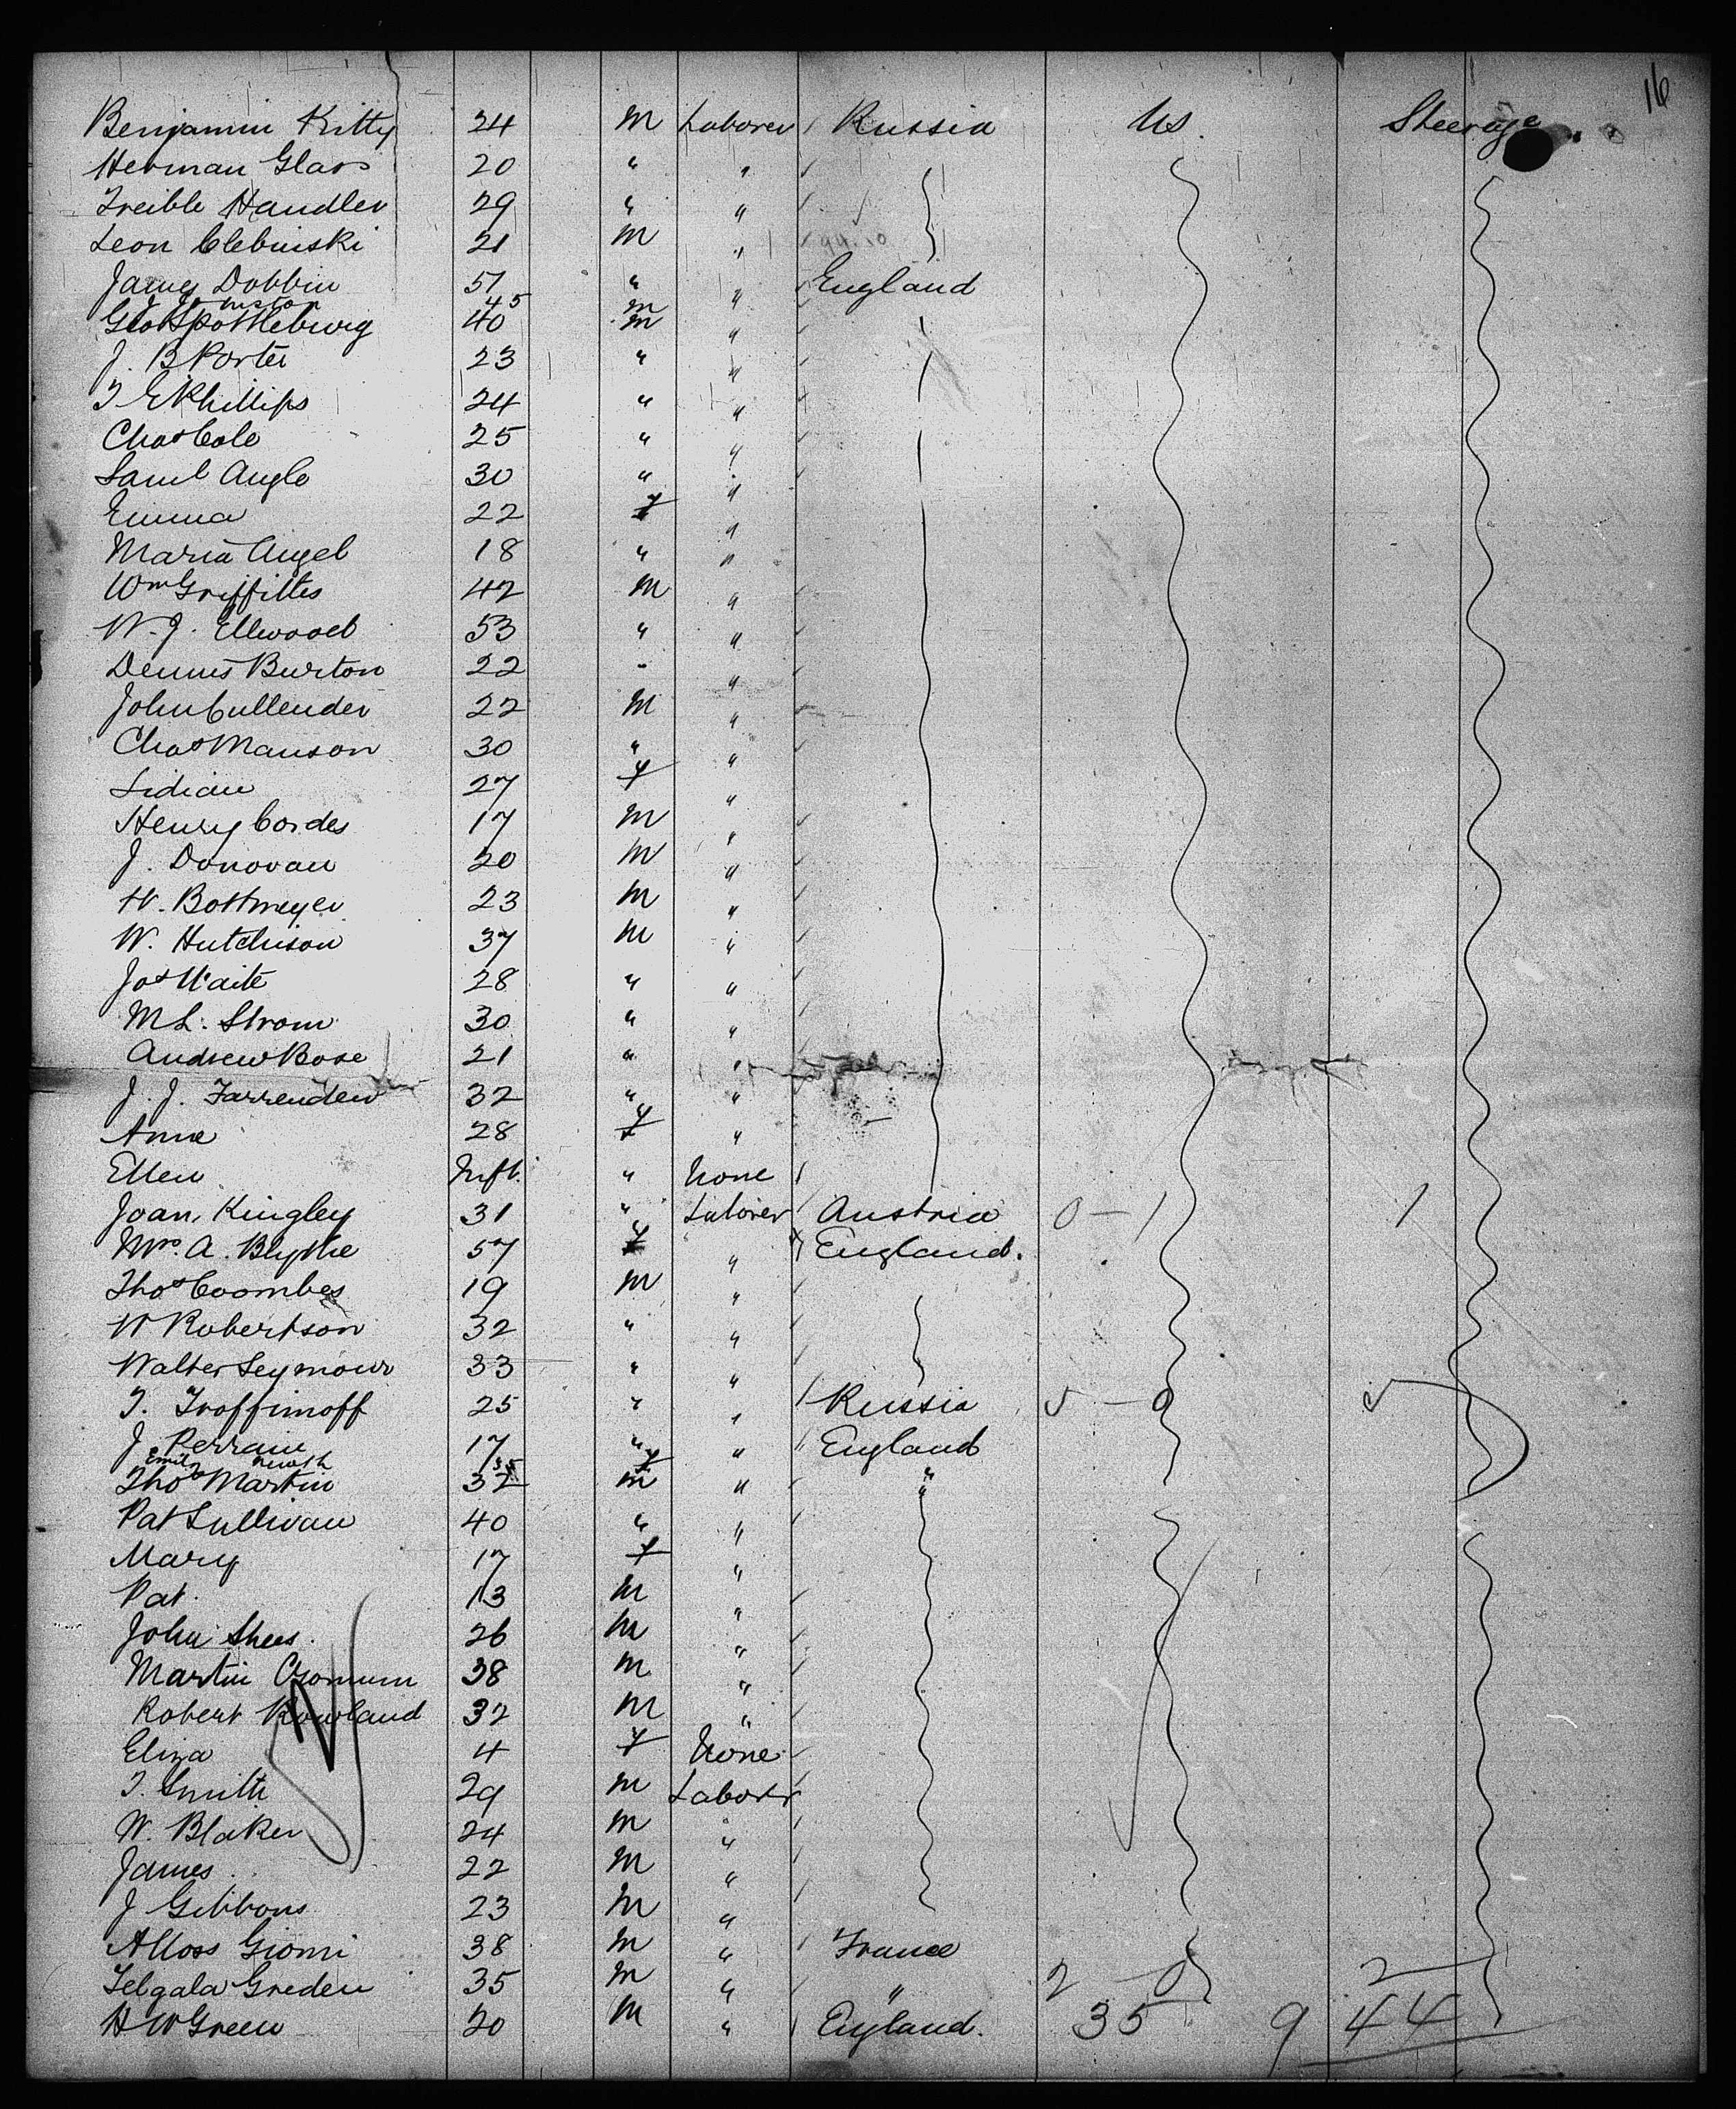 16
Benjamin Kitty 24 M Laborer Russia U.S. Steerage
Herman Glass 20 " "
Treible Handler 29 " "
Leon Clebinski 21 M "
James Dobbin 51 " " England
J Johnston 45 M
Geo Spottleburg 40 M "
J. B Porter 23 " "
T E Phillips 24 " "
Chas Cole 25 " "
Saml Angle 30 " "
Emma 22 f "
Maria Angel 18 " "
Wm Griffittes 42 M "
W. J. Ellwood 53 " "
Dennis Burton 22 " "
John Cullender 22 M "
Chas Manson 30 " "
Lidian 27 f "
Henry Cordes 17 M "
J. Donovan 20 M "
H. Bottmeyer 23 M "
W. Hutchison 37 M "
Jos Waite 28 " "
M L. Strom 30 " "
Andrew Bose 21 " "
J. J. Farrenden 32 " "
Anne 28 f "
Ellen Inft. " None
Joan, Kingley 31 " Laborer Austria 0 - 1 1
Mrs. A. Blythe 57 f " England.
Thos Coombes 19 M "
W Robertson 32 " "
Walter Seymour 33 " "
T. Troffimoff 25 " " Russia
J Perrain 17 " " England
Emily 35 f
Thos Martin 32 M " "
Pat Sullivan 40 " " "
Mary 17 f "
Pat. 13 M "
John Shees. 26 M "
Martin 38 M "
Robert Rowland 32 M "
Eliza 4 f None
T. Smith 29 M Laborer
W. Blaker 24 M "
James. 22 M "
J Gibbons 23 M "
Alloss Giomi 38 M " France
Telgala Greden 35 M " " 2 - 0 2
H W Green 20 M " England. 35 9 44